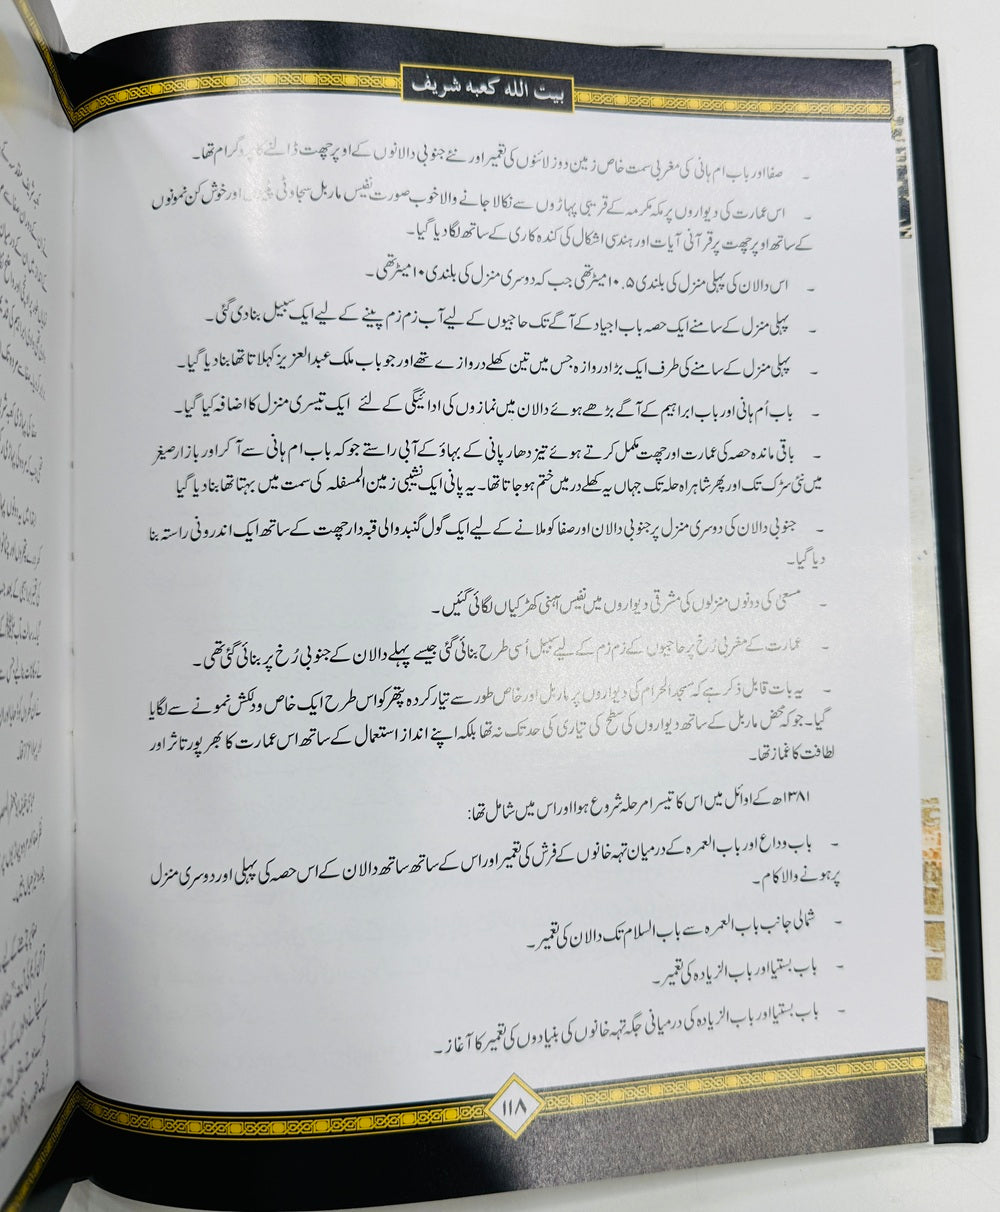 بیت اللہ کعبہ شریف
۔ صفا اور باب ام ہانی کی مغربی سمت خاص زمین دوز لائنوں کی تعمیر اور نئے جنوبی دالانوں کے اوپر چھت ڈالنے کا پروگرام تھا۔
۔ اس عمارت کی دیواروں پر مکہ مکرمہ کے قریبی پہاڑوں سے نکالا جانے والا خوب صورت نفیس ماربل سجاوٹی اور خوش کن نمونوں
کے ساتھ اوپر چھت پر قرآنی آیات اور ہندسی اشکال کی کندہ کاری کے ساتھ لگا دیا گیا۔
۔ اس دالان کی پہلی منزل کی بلندی ۱۰.۵ میٹر تھی جب کہ دوسری منزل کی بلندی ۱۰ میٹر تھی ۔
۔ پہلی منزل کے سامنے ایک حصہ باب اجیاد کے آگے تک حاجیوں کے لیے آب زم زم پینے کے لیے ایک سبیل بنا دی گئی۔
۔ پہلی منزل کے سامنے کی طرف ایک بڑا دروازہ جس میں تین کھلے دروازے تھے اور جو باب ملک عبدالعزیز کہلاتا تھا بنا دیا گیا۔
۔ باب اُم ہانی اور باب ابراہیم کے آگے بڑھے ہوئے دالان میں نمازوں کی ادائیگی کے لئے ایک تیسری منزل کا اضافہ کیا گیا۔
۔ باقی ماندہ حصہ کی عمارت اور چھت مکمل کرتے ہوئے تیز دھار پانی کے بہاؤ کے آبی راستے جو کہ باب ام ہانی سے آ کر اور بازار صغیر
میں نئی سڑک تک اور پھر شاہراہ حلہ تک جہاں یہ کھلے در میں ختم ہو جاتا تھا۔ یہ پانی ایک نشیبی زمین المسفلہ کی سمت میں بہتا تھا بنا دیا گیا
۔ جنوبی دالان کی دوسری منزل پر جنوبی دالان اور صفا کو ملانے کے لیے ایک گول گنبد والی قبہ دار چھت کے ساتھ ایک اندرونی راستہ بنا
دیا گیا۔
۔ مسعیٰ کی دونوں منزلوں کی مشرقی دیواروں میں نفیس آہنی کھڑکیاں لگائی گئیں۔
۔ عمارت کے مغربی رُخ پر حاجیوں کے زم زم کے لیے سبیل اُسی طرح بنائی گئی جیسے پہلے دالان کے جنوبی رُخ پر بنائی گئی تھی۔
۔ یہ بات قابل ذکر ہے کہ مسجد الحرام کی دیواروں پر ماربل اور خاص طور سے تیار کردہ پتھر کو اس طرح ایک خاص و دلکش نمونے سے لگایا
گیا۔ جو کہ محض ماربل کے ساتھ دیواروں کی سطح کی تیاری کی حد تک نہ تھا بلکہ اپنے انداز استعمال کے ساتھ اس عمارت کا بھر پور تاثر اور
لطافت کا غماز تھا۔
۱۳۸۱ھ کے اوائل میں اس کا تیسرا مرحلہ شروع ہوا اور اس میں شامل تھا:
۔ باب وداع اور باب العمرہ کے درمیان تہہ خانوں کے فرش کی تعمیر اور اس کے ساتھ ساتھ دالان کے اس حصہ کی پہلی اور دوسری منزل
پر ہونے والا کام۔
۔ شمالی جانب باب العمرہ سے باب السلام تک دالان کی تعمیر۔
۔ باب بستیا اور باب الزیادہ کی تعمیر۔
۔ باب بستیا اور باب الزیادہ کی درمیانی جگہ تہہ خانوں کی بنیادوں کی تعمیر کا آغاز ۔
۱۱۸